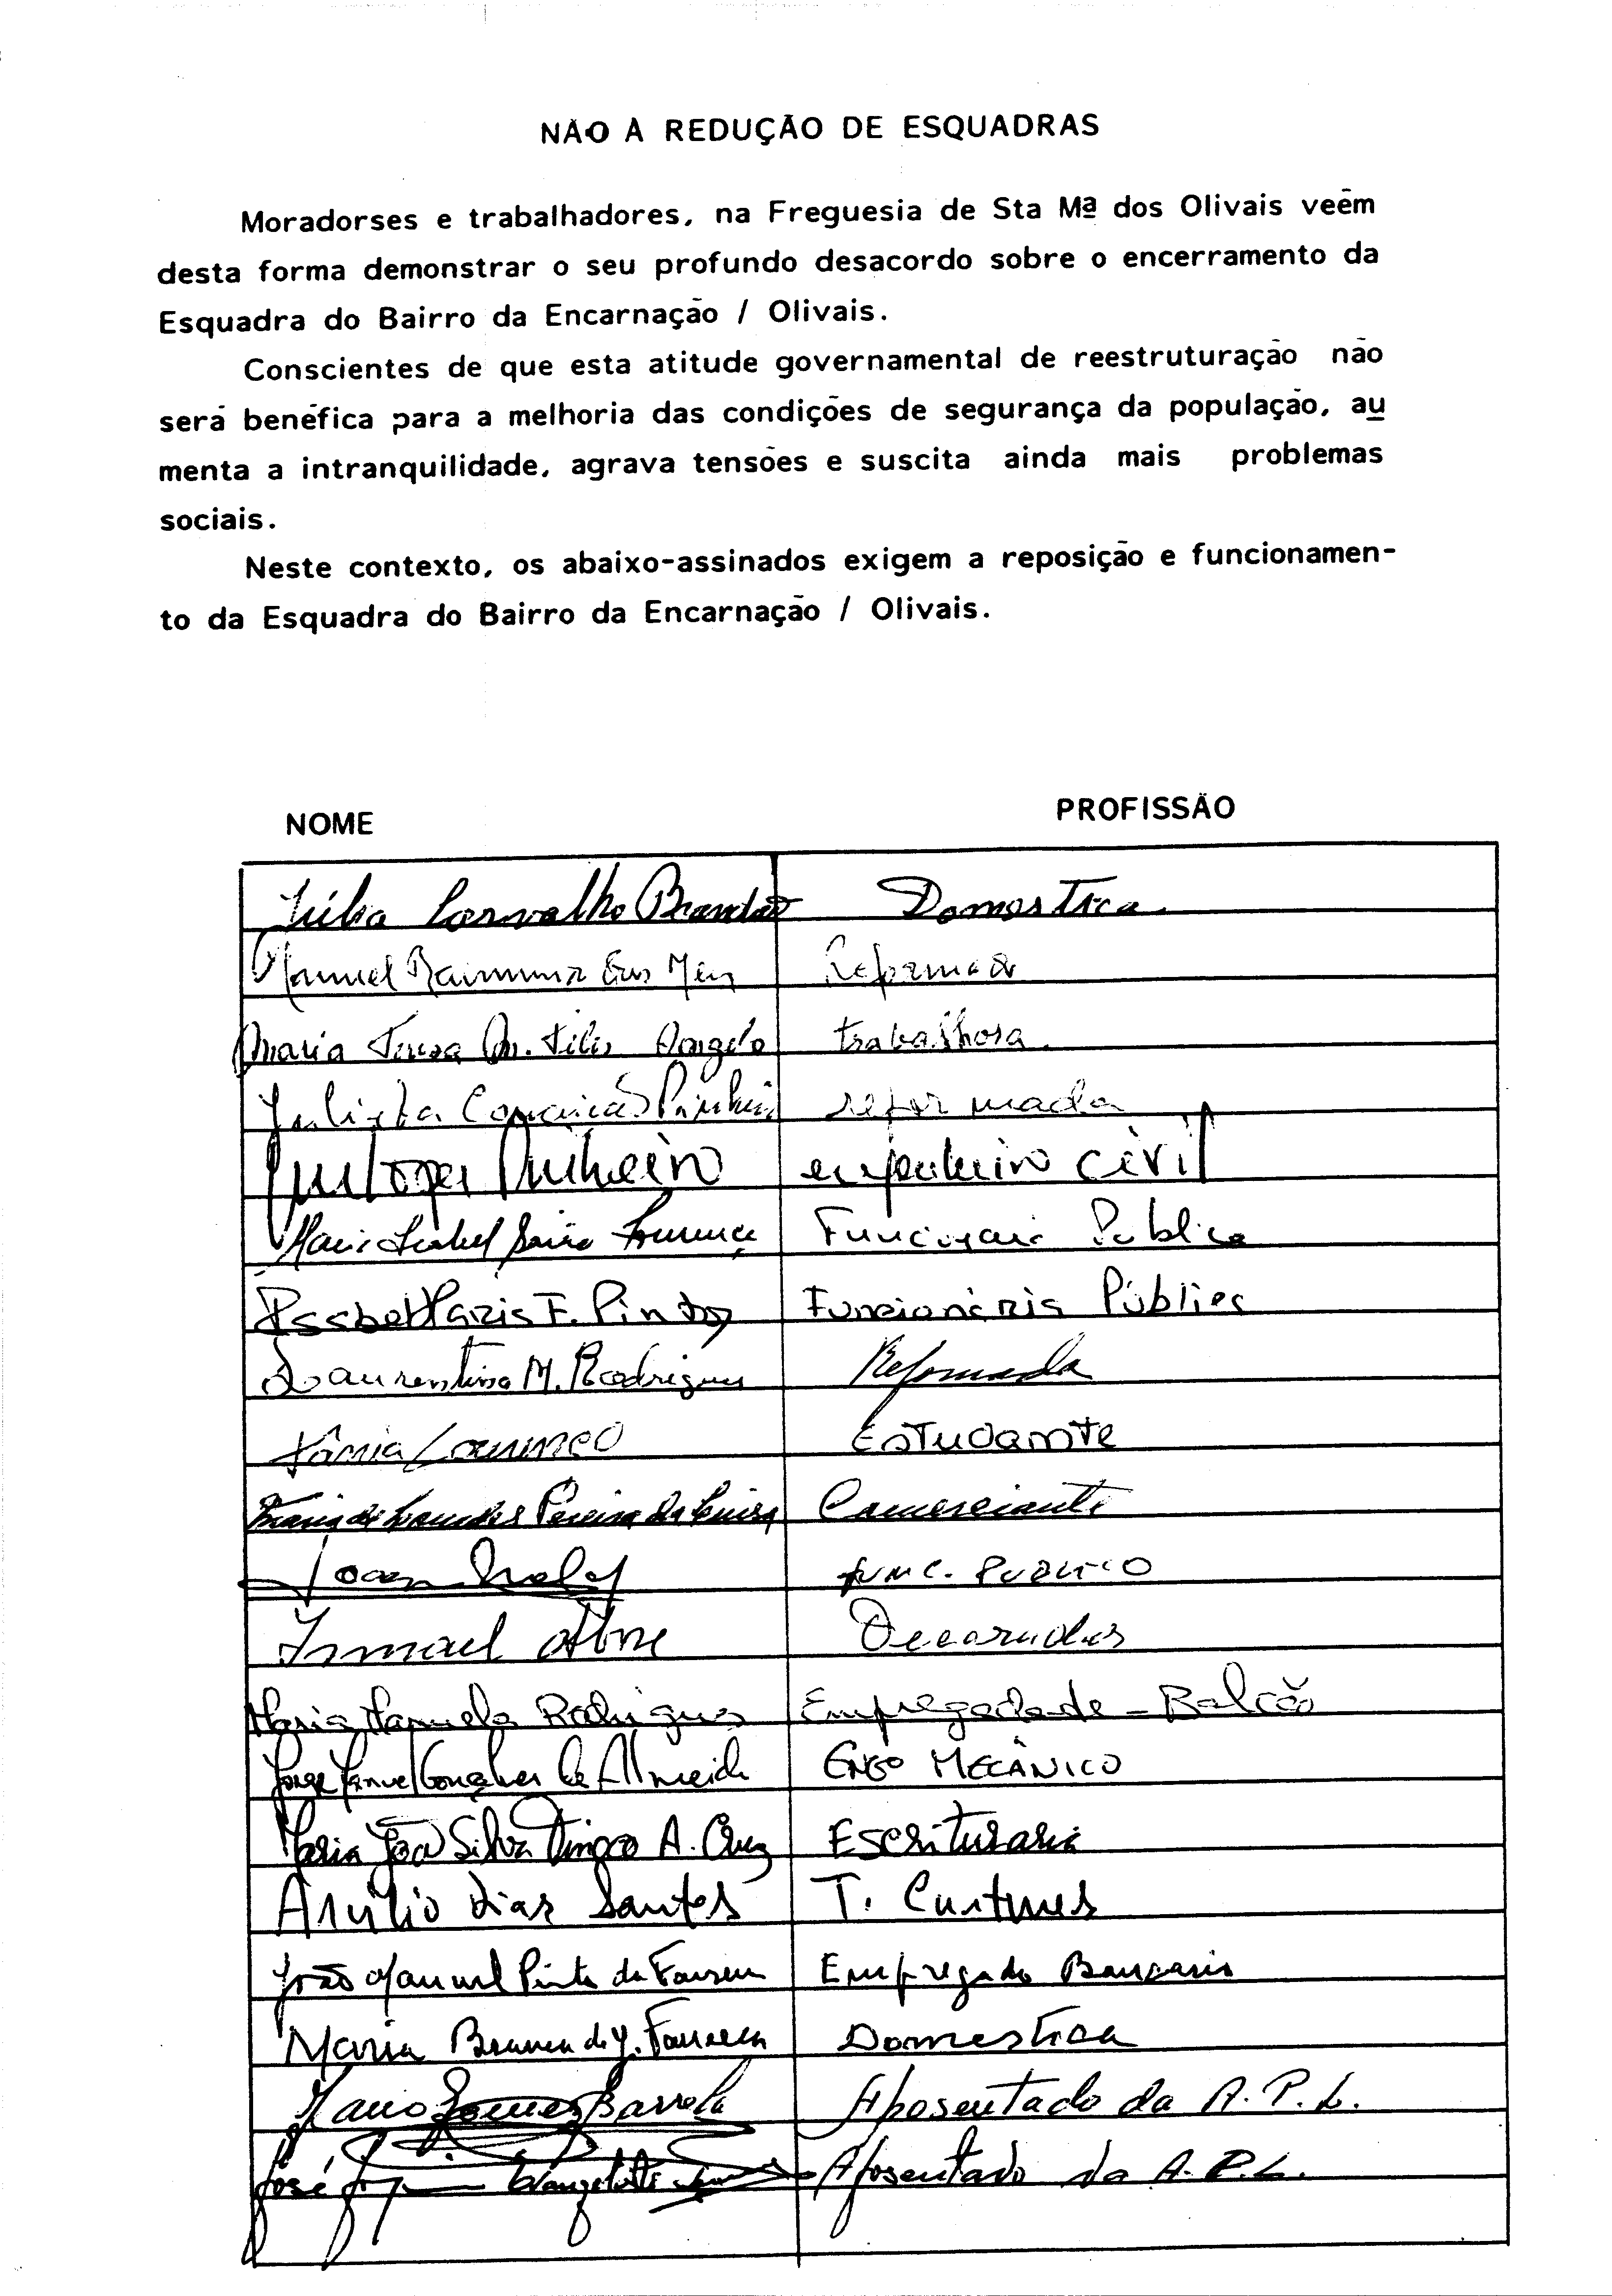 NÃO À REDUÇÃO DE ESQUADRAS
Moradorses e trabalhadores, na Freguesia de Sta Mª dos Olivais veêm
desta forma demonstrar o seu profundo desacordo sobre o encerramento da
Esquadra do Bairro da Encarnação / Olivais.
Conscientes de que esta atitude governamental de reestruturação não
será benéfica para a melhoria das condições de segurança da população, au
menta a intranquilidade, agrava tensões e suscita ainda mais problemas
sociais.
Neste contexto, os abaixo-assinados exigem a reposição e funcionamen-
to da Esquadra do Bairro da Encarnação / Olivais.
NOME PROFISSÃO
Carvalho Brandão Domestica
Manuel
Maria Teresa Angelo
Julieta reformada
Pinheiro civil
Maria Isabel Publica
F. Pinto Funcionária Pública
M. Rodrigues Reformada
Tânia Lourenço Estudante
Maria de Lourdes Pereira da Comerciante
Func. Publico
Ismael
Maria Manuela Rodrigues Empregada de - Balcão
Jorge Manuel Gonçalves de Almeida Engº MECÂNICO
Maria João Silva A. Cruz Escrituraria
Dias Santos T. Curtumes
João Manuel Pinto da Fonseca Empregado Bancario
Maria Branca Fonseca Domestica
Gomes Aposentado da A.P.L.
José Evangelista Aposentado da A.P.L.